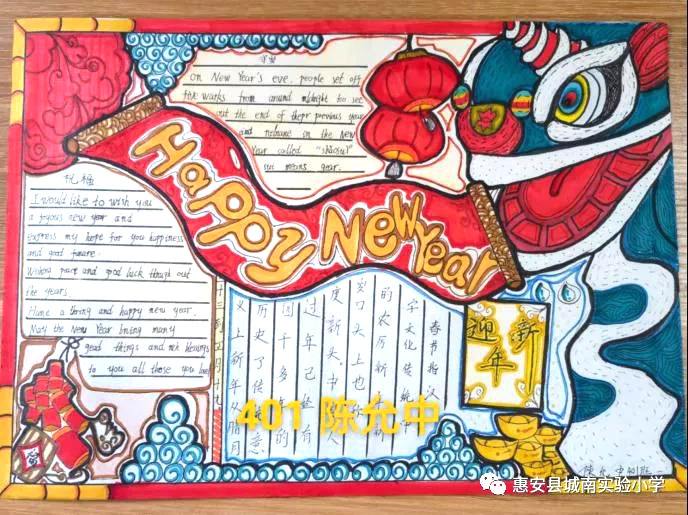 守岁
on New Year's eve, people set off
fire works from around midnight too see
out the end of thepr previous year
and in the New
Year called "shousui"
sui means year.
Happy New Year
祝福
I would like to wish you
a joyous new year and
express my hope for you happiness
and good future.
Wishing peace and good luck
the years
Have a loving and happy new year.
May the New Year bring many
good things and rich blessings
to you all those you love
春节指汉
字文化传统
的农历新
岁口头上也
度新头.中
过年已经有
四十多年的
历史了传统意
义上新年从腊月
新年
迎
401 陈允中
惠安县城南实验小学